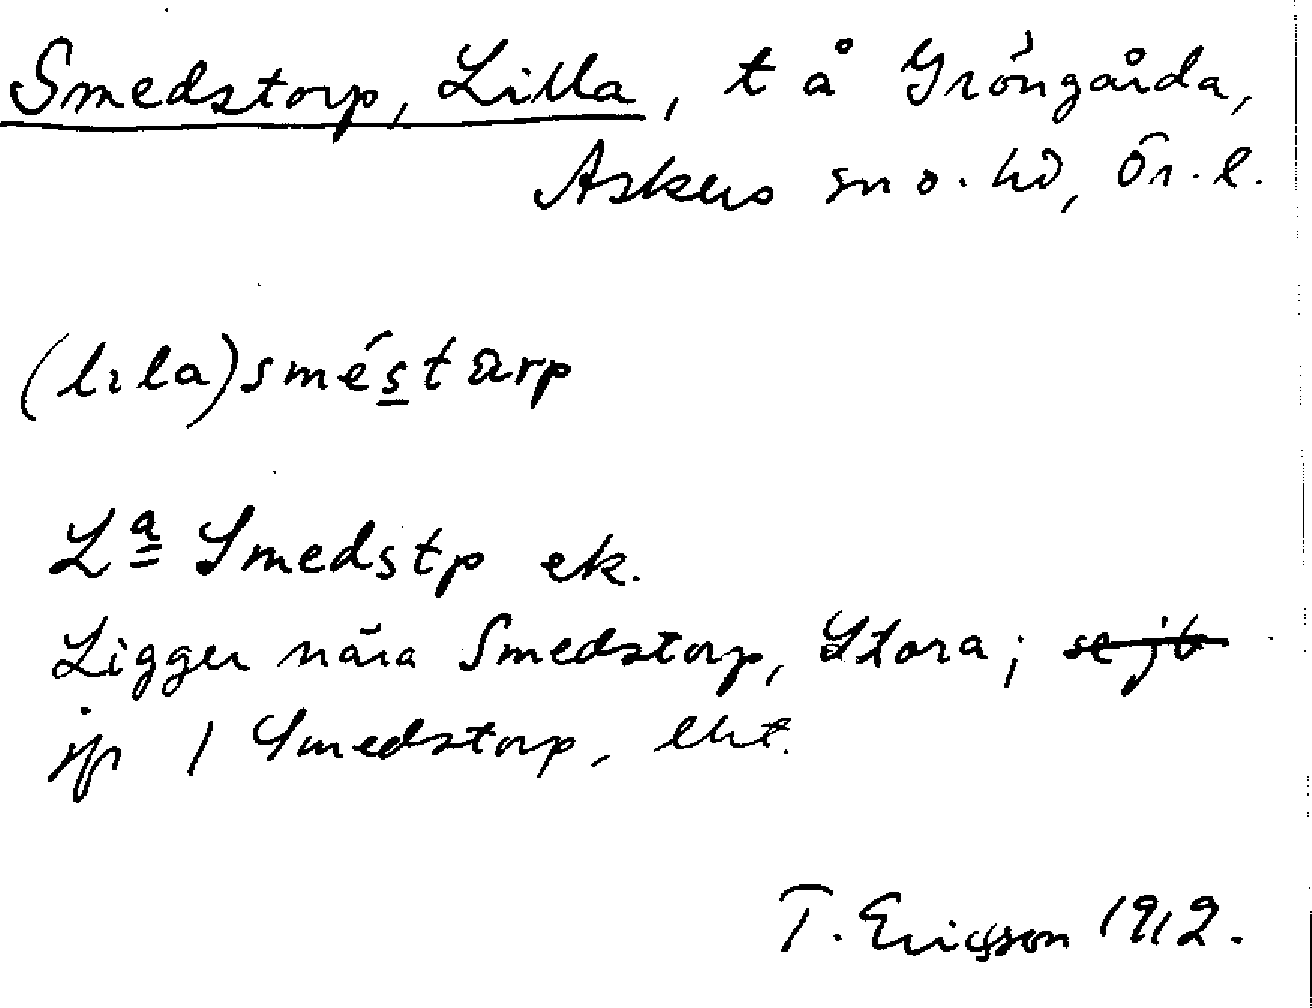 Smedstorp, Lilla, t å Gröngårda,
Askers sn o. hd, Ör. l.
(lıla)sméstarp
Lª Smedstp ek.
Ligger nära Smedstorp, Stora;
jfr / Smedstorp,
T. Ericsson 1912.